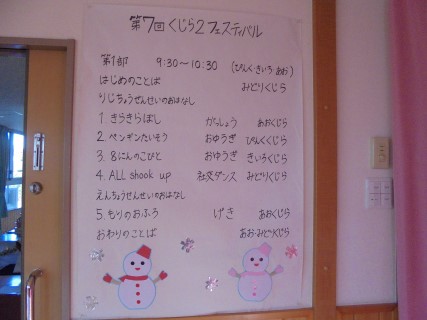 第7回くじら2フェスティバル
第1部 9:30～10:30 (ぴんく・きいろ・あお)
はじめのことば みどりくじら
りじちょうせんせいのおはなし
1. きらきらぼし がっしょう あおくじら
2. ペンギンたいそう おゆうぎ ぴんくくじら
3. 8にんのこびと おゆうぎ きいろくじら
4. ALL shook up 社交ダンス みどりくじら
えんちょうせんせいのおはなし
5. もりのおふろ げき あおくじら
おわりのことば あお・みどりくじら